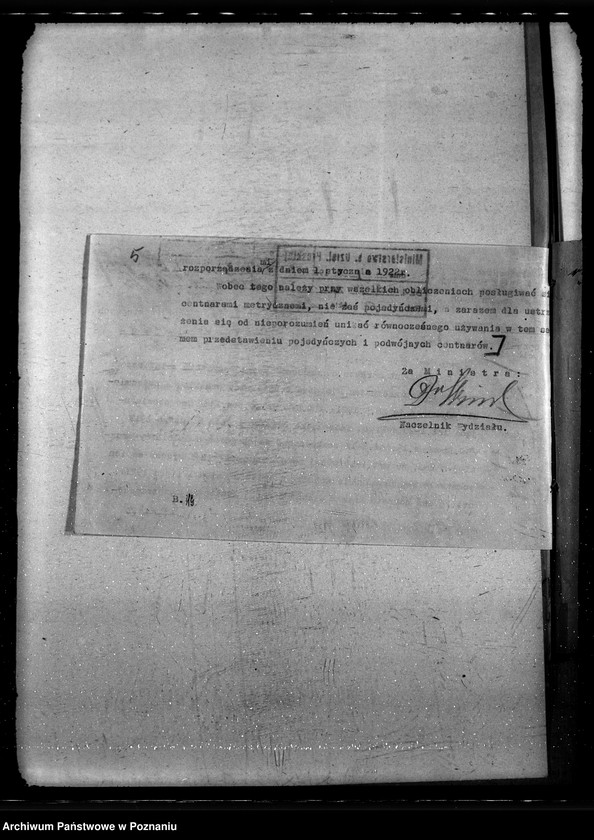 5
rozporządzenia z dniem 1 stycznia 1922r.
Wobec tego należy przy wszelkich obliczeniach posługiwać si
centnarami metrycznemi, nie zaś pojedyńczemi, a zarazem dla ustrz
żenia się od nieporozumień unikać równoczesnego używania w tem sa
mem przedstawieniu pojedyńczych i podwójnych centnarów.
Za Ministra:
Naczelnik Wydziału.
B.
Archiwum Państwowe w Poznaniu